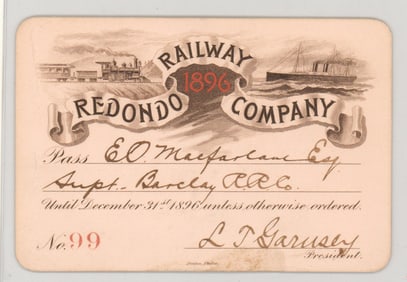 RAILWAY
1896
REDONDO COMPANY
Pass E.O. Macfarlane Esq
Supt. Barclay R.R.Co.
Until December 31st 1896 unless otherwise ordered.
No. 99
L T Garnsey
President.